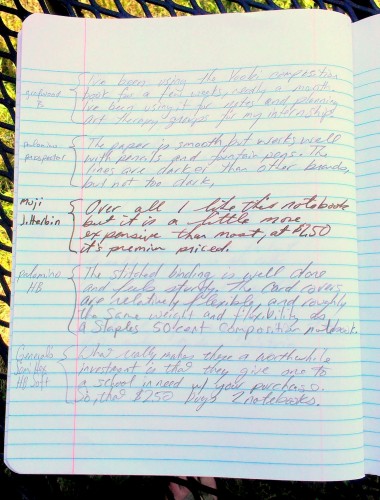 I've been using the composition
book for a few weeks, nearly a month
I've been using it for notes and planning
art therapy groups for my internship.
palomino
prospector
The paper is smooth but works well
with pencils and fountain pens. The
lines are darker than other brands,
but not too dark.
Muji
J. Herbin
Over all I like this notebook
but it is a little more
expensive than most, at $2.50
it's premium priced.
palomino
HB
The stitched binding is well done
and feels sturdy. The card covers
are relatively flexible, and roughly
the same weight and flexibility as
a Staples 50 cent composition notebook.
HB Soft
What really makes these a worthwhile
investment is that they give one to
a school in need w/ your purchase.
So, that $2.50 buys 2 notebooks.